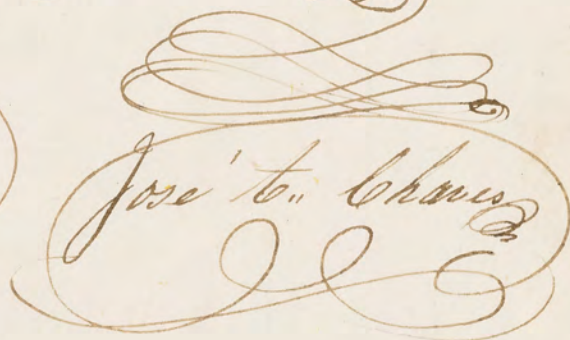 José t,, Chaves